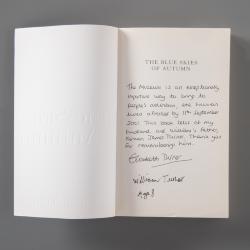 THE BLUE SKIES
OF AUTUMN
The Museum is an exceptionally
important way to bring to
people's attention, the human
lives affected by 11th September
2001. This book tells of my
husband, and William's father,
Simon James Turner. Thank you
for remembering him.
Elizabeth Turner
William Turner
Age 8